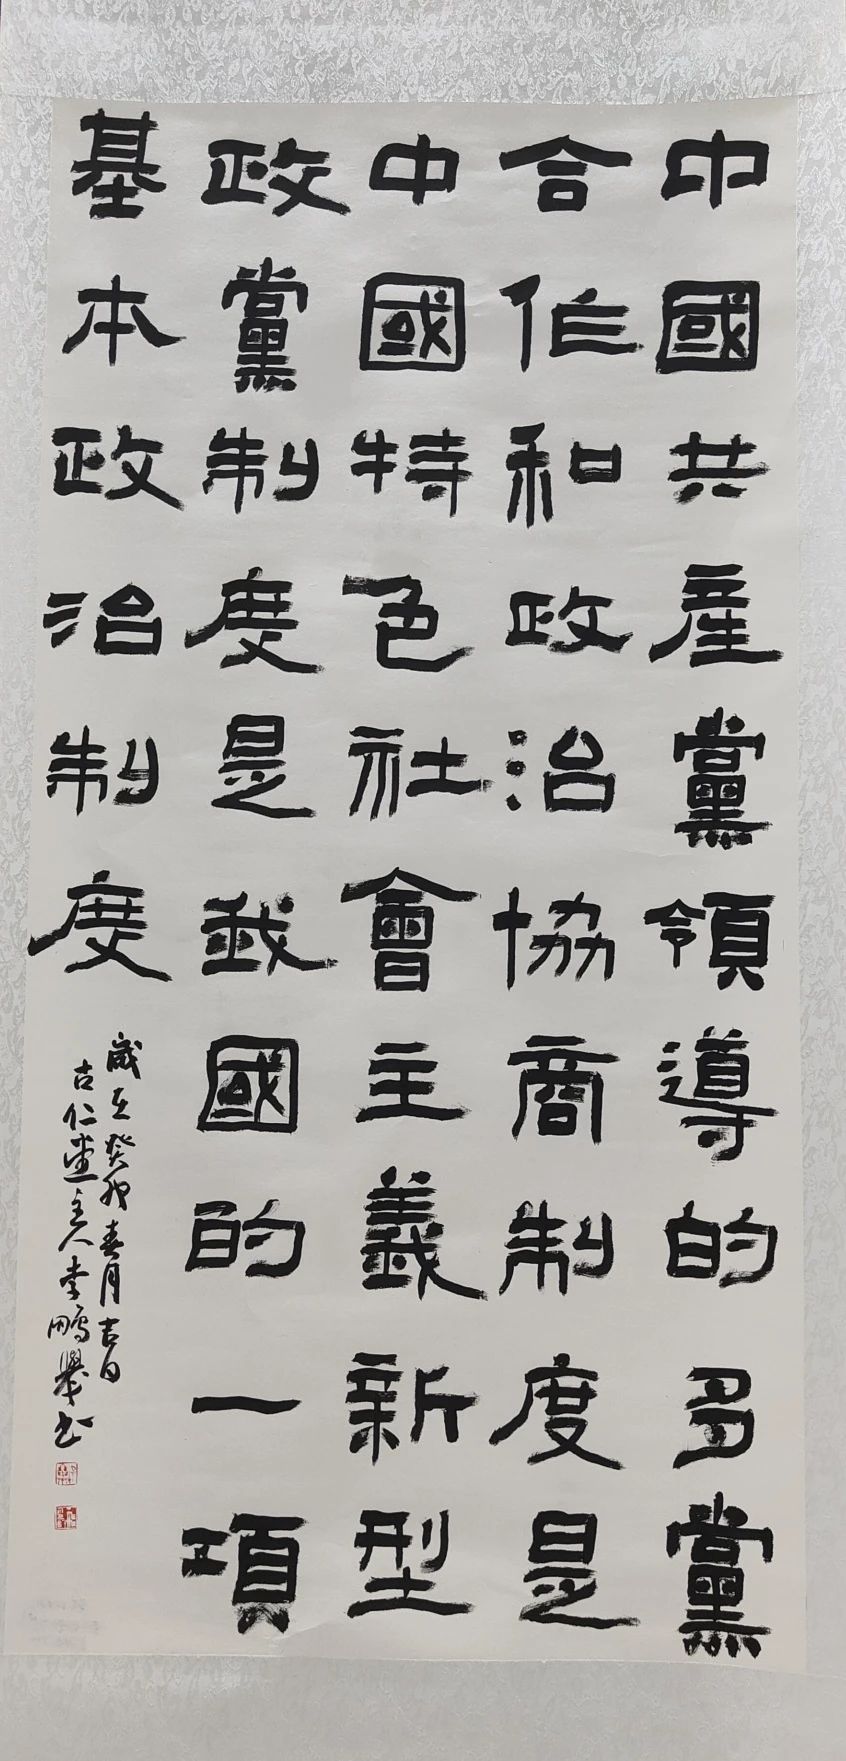 中國共產黨領導的多黨
合作和政治協商制度是
中國特色社會主義新型
政黨制度是我國的一項
基本政治制度
歲在癸卯春月吉日
古仁堂主人李鵬舉书